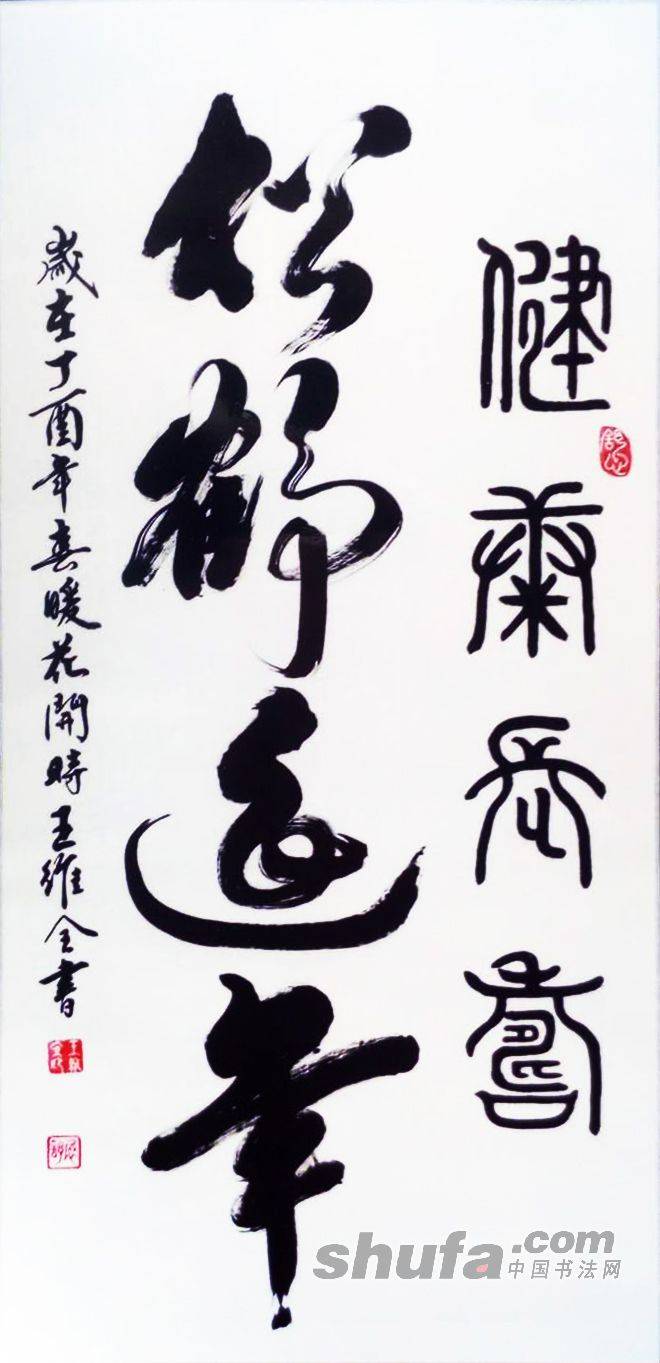 健康長壽
松鶴延年
歲在丁酉年春暖花開時王維全書
shufa.com
中国书法网